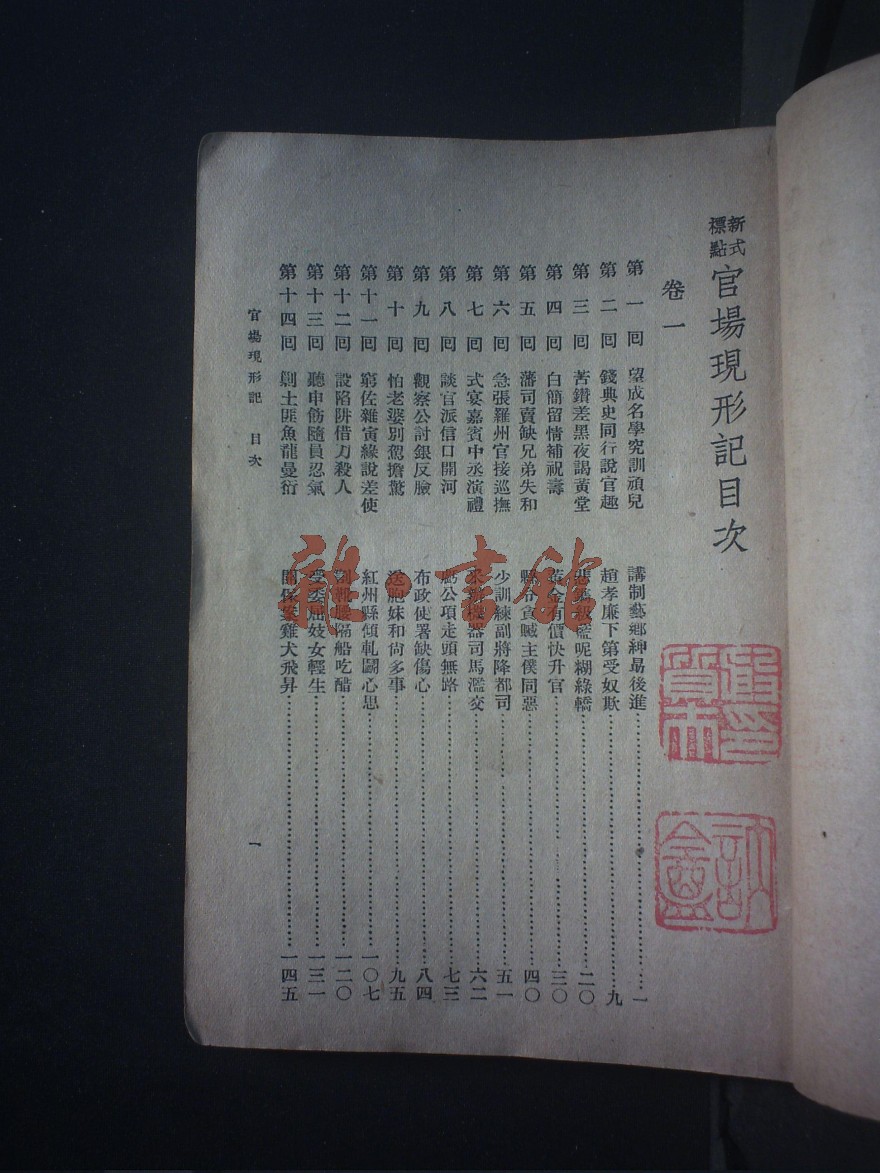 新式標點 官場現形記目次
卷一
第一回 望成名學究訓頑兒 講制藝鄉紳勗後進 一
第二回 錢典史同行說官趣 趙孝廉下第受奴欺 九
第三回 苦鑽差黑夜謁黃堂 悲鐫級藍呢糊綠轎 二〇
第四回 白簡留情補祝壽 黃金有價快升官 三〇
第五回 藩司賣缺兄弟失和 縣令貪贓主僕同惡 四〇
第六回 急張羅州官接巡撫 少訓練副將降都司 五一
第七回 式宴嘉賓中丞演禮 采辦機器司馬濫交 六二
第八回 談官派信口開河 虧公項走頭無路 七三
第九回 觀察公討銀反臉 布政使署缺傷心 八四
第十回 怕老婆別駕擔驚 送胞妹和尙多事 九五
第十一回 窮佐雜寅緣說差使 紅州縣傾軋鬭心思 一〇七
第十二回 設陷阱借刀殺人 割靴腰隔船吃醋 一二〇
第十三回 聽申飭隨員忍氣 受委屈妓女輕生 一三一
第十四回 剿土匪魚龍曼衍 開保案雞犬飛昇 一四五
官場現形記 目次
一
龍の書館